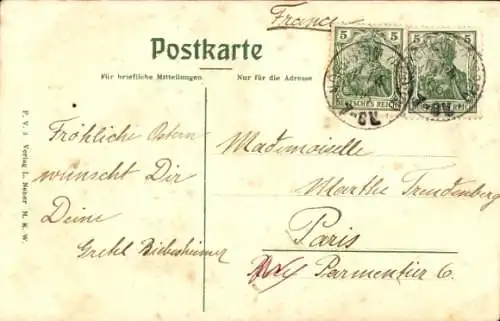 France
Postkarte
Für briefliche Mitteilungen.
Nur für die Adresse
5 5
5 5
DEUTSCHES REICH
P. V. 3 Verlag L. Neher M. K. W.
Fröhliche Ostern
wünscht Dir
Deine
Gretel Biebesheimer
Mademoiselle
Marthe Treudenberg
Paris
Parmentier 6.